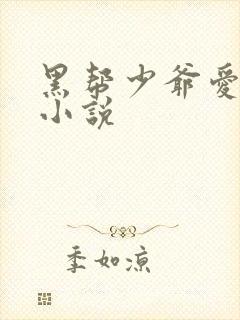 黑帮少爷愛
小説
季如凉